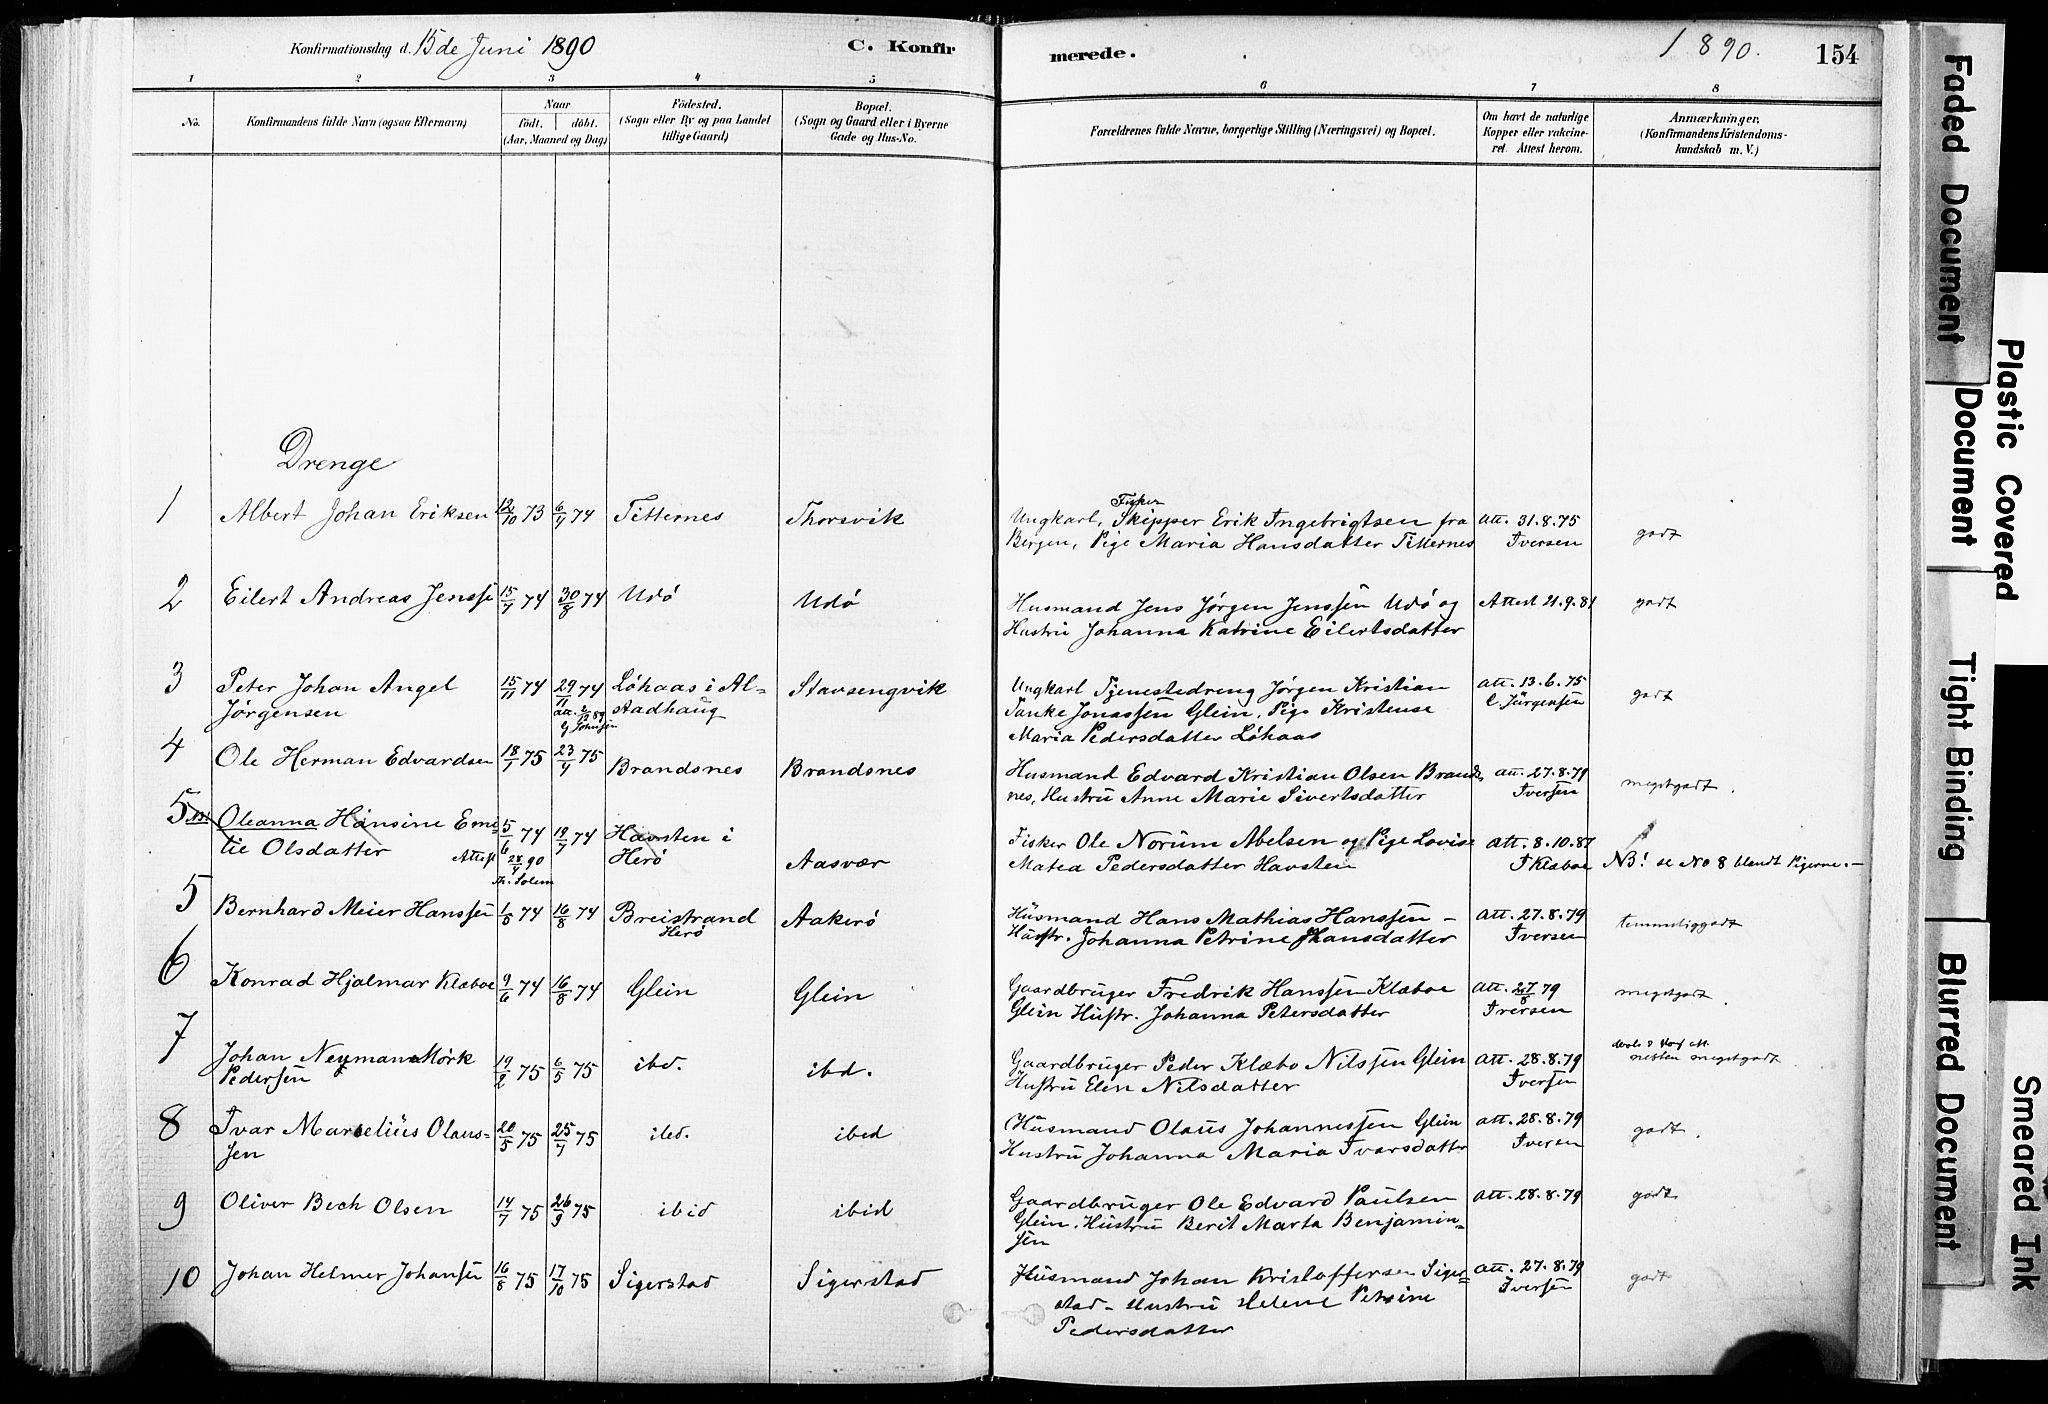 Konfirmationsdag d. 15de Juni 1890
C. Konfir
merede.
1890.
154
1 2 3 4 5 6 7 8
No.
Konfirmandens fulde Navn (ogsaa Efternavn)
Naar
født. døbt.
(Aar, Maaned og Dag)
Fødested.
(Sogn eller By og paa Landet
tillige Gaard)
Bopæl.
(Sogn og Gaard eller i Byerne
Gade og Hus-No.
Forældrenes fulde Navne, borgerlige Stilling (Næringsvei) og Bopæl.
Om havt de naturlige
Kopper eller vakcine-
ret. Attest herom.
Anmærkninger.
(Konfirmandens Kristendoms-
kundskab m. V.)
Drenge
1 Albert Johan Eriksen 12/10 73 6/4 74 Titternes Thorsvik
Fisker
Ungkarl, Skipper Erik Ingebrigtsen fra
Bergen, Pige Maria Hansdatter Titternes
att. 31.8.75
Iversen
godt
2 Eilert Andreas Jenssen 15/7 74 30/8 74 Udø Udø
Husmand Jens Jørgen Jenssen Udø og
Hustru Johanna Katrine Eilertsdatter
Attest 21.9.81
godt
3 Peter Johan Angel
Jørgensen
15/11 74 29/11 74
Løhaas i Al-
stadhaug
Stavsengvik
Ungkarl Tjenestedreng Jørgen Kristian
Tanke Jonassen Glein, Pige Kristense
Maria Pedersdatter Løhaas
att. 13.6.75
C. Jürgensen
godt
4 Ole Herman Edvardsen 18/1 75 23/4 75 Brandsnes Brandsnes
Husmand Edvard Kristian Olsen Brands
nes, Hustru Anne Marie Sivertsdatter
att. 27.8.79
Iversen
megetgodt.
5 Oleanna Hansine Emi-
lie Olsdatter
5/6 74 19/7 74
Attest 28/4 90
Th. Solem
Havsten i
Herø
Aasvær
Fisker Ole Norum Abelsen og Pige Lovise
Matea Pedersdatter Havsten
att. 8.10.87
J Klæboe
NB! se No 8 blandt Pigerne.-
5 Bernhard Meier Hanssen 1/8 74 16/8 74 Breistrand
Herø
Aakerø
Husmand Hans Mathias Hanssen -
Hustr. Johanna Petrine Hansdatter
att. 27.8.79
Iversen
temmeliggodt
6 Konrad Hjalmar Klæboe 9/6 74 16/8 74 Glein Glein
Gaardbruger Fredrik Hanssen Klæboe
Glein Hustr. Johanna Petersdatter
att. 27/8 79
Iversen
megetgodt.
7 Johan Neumann Mörk
Pedersen
19/2 75 6/5 75 ibd. ibd.
Gaardbruger Peder Klæbo Nilssen Glein
Hustru Elen Nilsdatter
att. 28.8.79
Iversen
nesten megetgodt
8 Ivar Marselius Olaus-
sen
20/5 75 25/7 75 ibd. ibid
Husmand Olaus Johannessen Glein
Hustru Johanna Maria Ivarsdatter
att. 28.8.79
Iversen
godt.
9 Oliver Bech Olsen 14/7 75 26/9 75 ibid ibid
Gaardbruger Ole Edvard Paulsen
Glein. Hustru Berit Marta Benjamin-
sen
att. 28.8.79
godt
10 Johan Helmer Johansen 16/8 75 17/10 75 Sigerstad Sigerstad
Husmand Johan Kristoffersen Siger-
stad - Hustru Helene Petrine
Pedersdatter
att. 27.8.79
Iversen
godt
Faded Document
Plastic Covered
Document
Tight Binding
Blurred Document
Smeared Ink